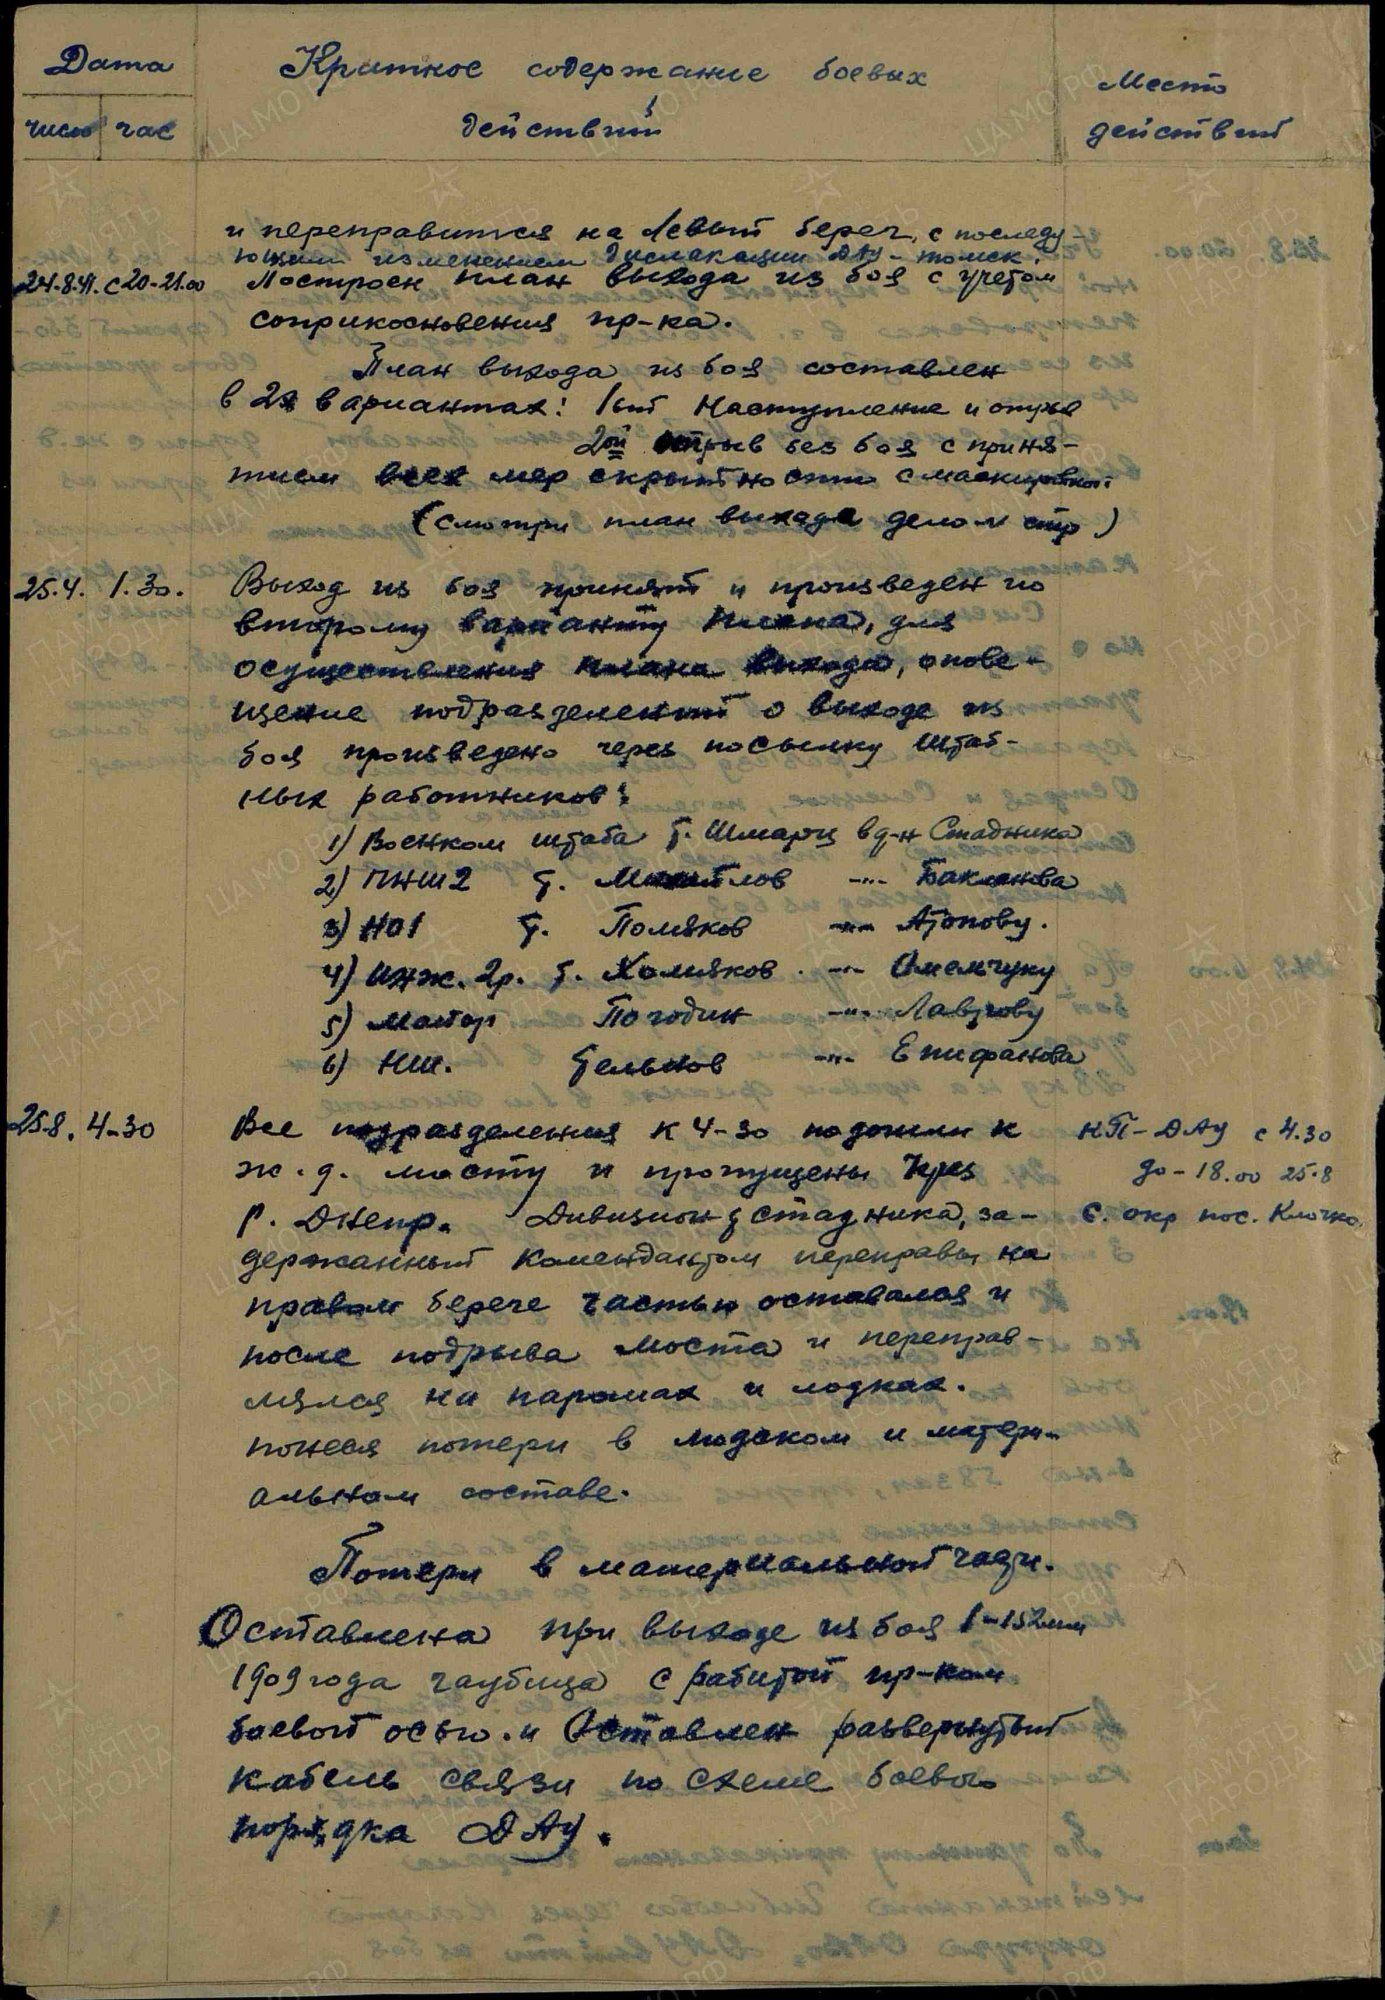 Дата
число час
Краткое содержание боевых
действий
Место
действий
и переправится на левый берег, с последу-
ющим изменением дислокации ДАУ - Томск.
24.8.41. с 20-21.00 Построен план выхода из боя с учетом
соприкосновения пр-ка.
План выхода из боя составлен
в 2х вариантах: 1ый Наступление и отрыв
2ой отрыв без боя с приня-
тием всех мер скрытности с маскировкой
(смотри план выхода дело № стр )
25.4. 1.30. Выход из боя принят и произведен по
второму варианту плана, для
осуществления плана выхода, опове-
щение подразделений о выходе из
боя произведено через посылку штаб-
ных работников:
1) Военком штаба т. Шмарц в д-н Стадника
2) ПНШ2 т. Михайлов -"- Бакланова
3) НО1 т. Поляков -"- Агапову.
4) Инж. 2р. т. Холияков. -"- Омельчуку
5) Майор Погодин -"- Лаврову
6) НШ. Тельнов -"- Епифанова
25.8. 4-30 Все подразделения к 4-30 подошли к
ж.д. мосту и пропущены через
р. Днепр. Дивизион т Стадника, за-
держанный комендантом переправы на
правом береге частью оставался и
после подрыва моста и переправ-
лялся на паромах и лодках.
понеся потери в людском и матери-
альном составе.
КП - ДАУ с 4.30
до - 18.00 25.8
С. окр пос. Клочко.
Потери в материальной части.
Оставлена при выходе из боя 1-152мм
1909 года гаубица с рабитой пр-ком
боевой осью. и Оставлен развернутый
кабель связи по схеме боевого
порядка ДАУ.
ПАМЯТЬ
НАРОДА
ЦА МО РФ